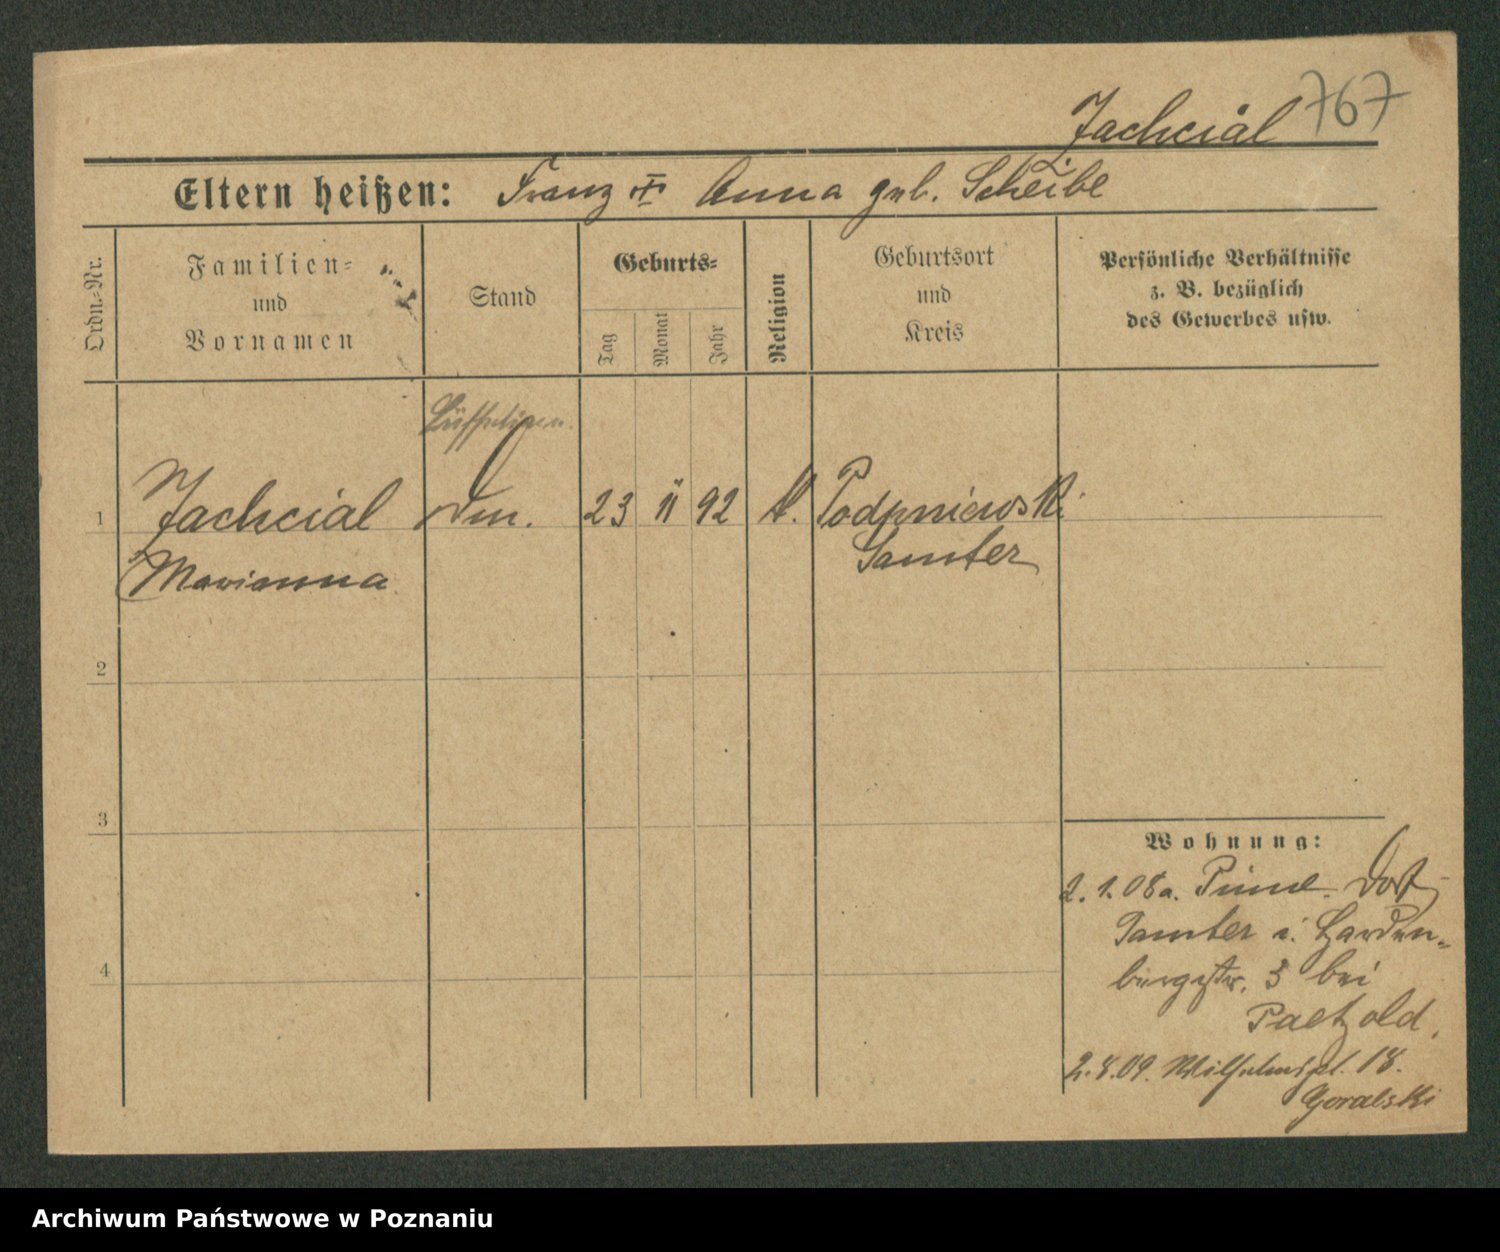 Jachcial 767
Eltern heißen: Franz Anna geb. Scheibe
Ordn.-Nr.
Familien-
und
Vornamen
Stand
Geburts-
Tag
Monat
Jahr
Religion
Geburtsort
und
Kreis
Persönliche Verhältnisse
z. B. bezüglich
des Gewerbes usw.
1 Jachcial 23 11 92 k. Podpniewski
Marianna Samter
2
3
4
Wohnung:
2.1.08 a. Pinne Dorf
Samter i. Harden-
bergstr. 3 bei
Paetzold.
2.8.09. Wilhelmspl. 18.
Goralski
Archiwum Państwowe w Poznaniu